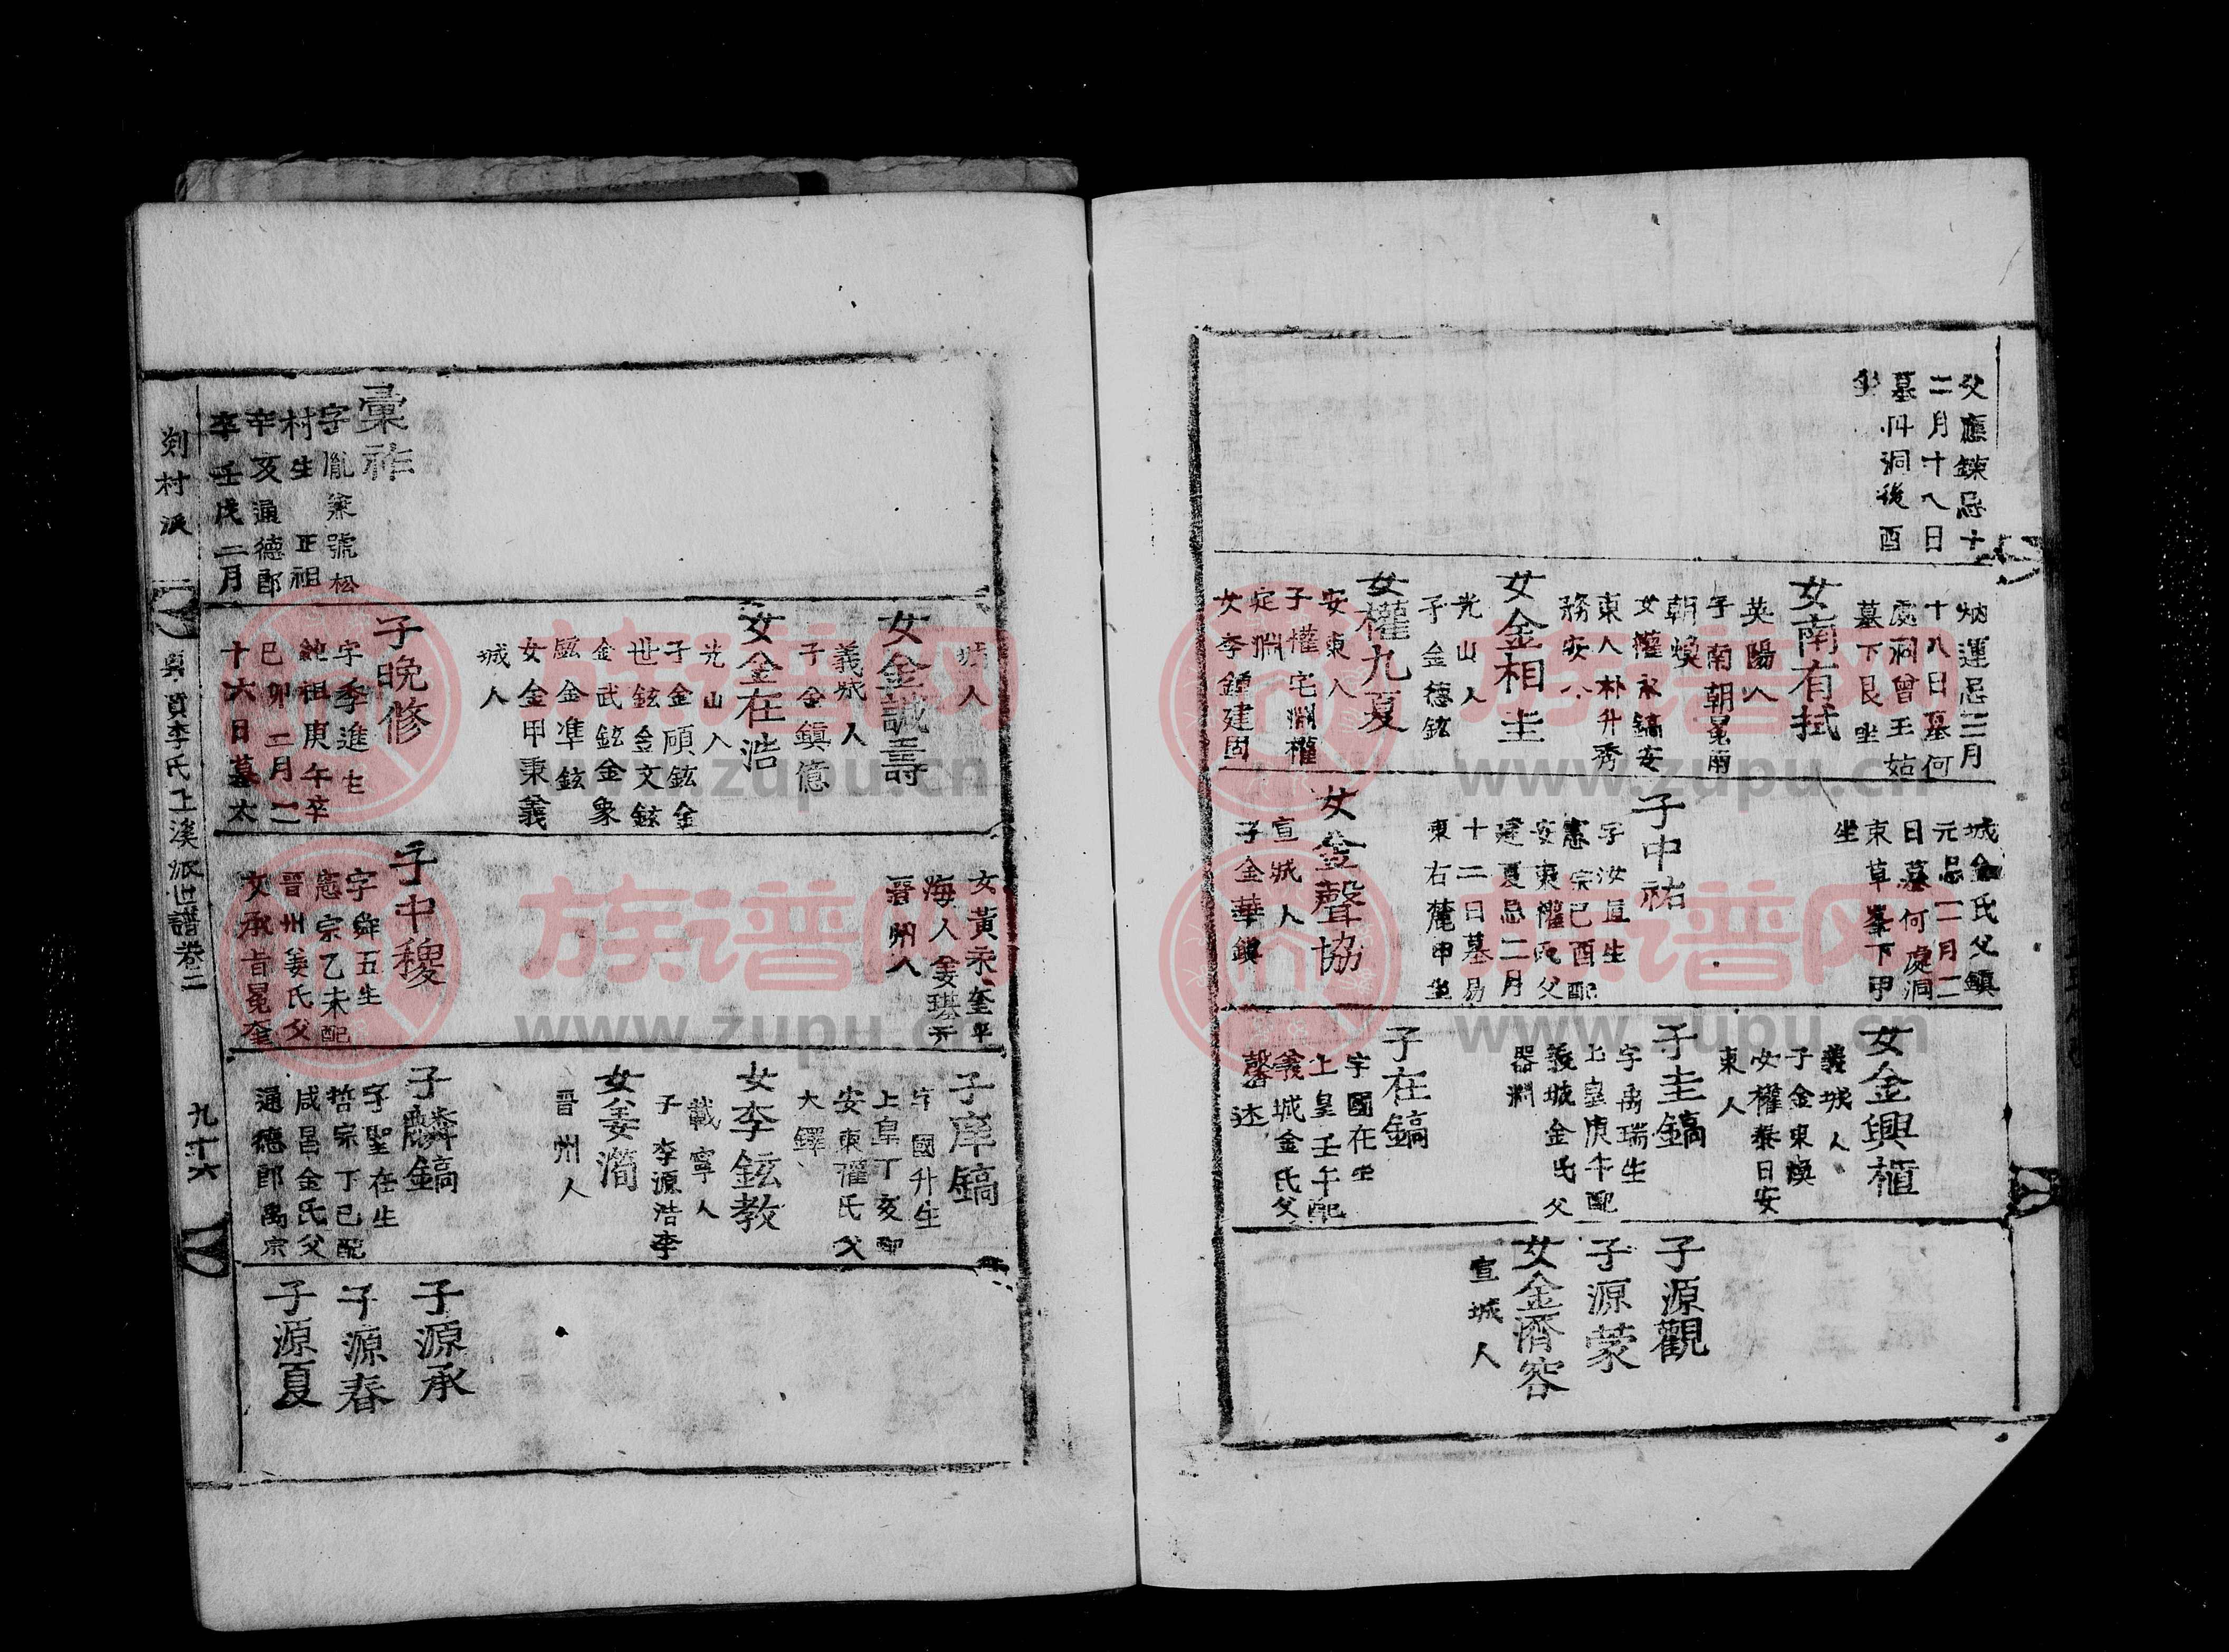 父應鍊忌十
二月十八日
墓 洞後酉
坐
炳運忌三月
十八日墓何
處洞曾王姑
墓下艮坐
女南有拭
英陽人
子南朝冕爾
朝煥
女權永鎬安
東人朴升秀
務安人
女金相圭
光山人
子金德鉉
女權九夏
安東人
子權宅淵權
定淵
女李鍾建固
城金氏父鎮
元忌二月二
日墓何處洞
東草峯下甲
坐
子中祐
字汝直生
憲宗己酉配
安東權氏父
建夏忌二月
十二日墓易
東右麓申坐
女金聲協
宣城人
子金華鎮
女金興植
義城人
子金東煥
女權泰日安
東人
子圭鎬
字禹瑞生
上皇庚午配
義城金氏父
器淵
子在鎬
字國在生
上皇壬午配
義城金氏父
馨述
子源觀
子源蒙
女金濟容
宣城人
城人
女金誠壽
義城人
子金鎮億
女金在浩
光山人
子金碩鉉金
世鉉金文鉉
金武鉉金象
鉉金準鉉
女金甲東義
城人
女黃永奎平
海人姜琪元
晉州人
子庠鎬
字國升生
上皇丁亥配
安東權氏父
大鐸
女李鉉教
載寧人
子李源浩李
女姜濟
晉州人
彙祚
字胤兼號松
村生 正祖
辛亥通德郎
卒壬戌二月
子晚修
字季進生
純祖庚午卒
己卯二月二
十六日墓太
子中稷
字舜五生
憲宗乙未配
晉州姜氏父
文承旨冕奎
子麟鎬
字聖在生
哲宗丁巳配
咸昌金氏父
通德郎禹宗
子源承
子源春
子源夏
剡村派
眞寶李氏上溪派世譜卷二
九十六
族谱网
www.zupu.cn
族谱网
www.zupu.cn
族谱网
www.zupu.cn
族谱网
www.zupu.cn